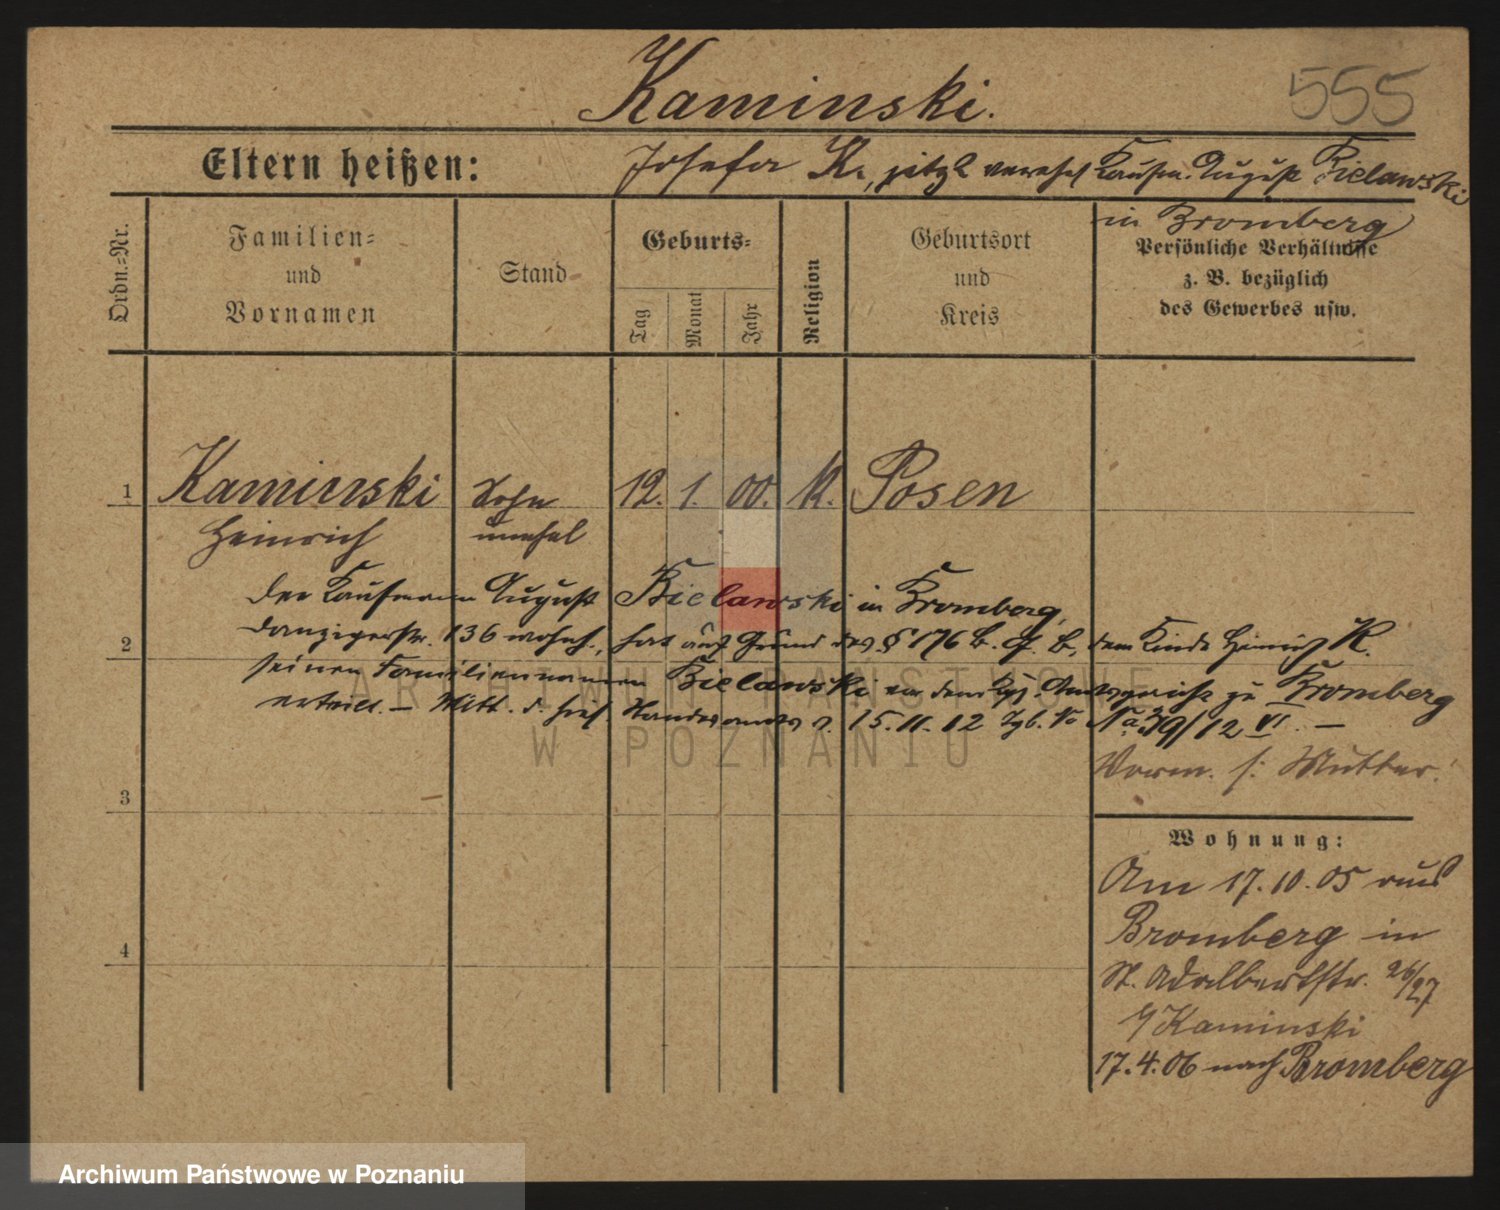 Kaminski.
555
Eltern heißen:
Josefa K., jetzt verehel. Kaufm. August Bielawski
in Bromberg
Ordn.-Nr.
Familien-
und
Vornamen
Stand
Geburts-
Tag
Monat
Jahr
Religion
Geburtsort
und
Kreis
Persönliche Verhältnisse
z. B. bezüglich
des Gewerbes usw.
1
Kaminski
Sohn
12. 1. 00. K. Posen
Heinrich
unehel
der Kaufmann August Bielawski in Bromberg,
2
Danzigerstr. 136 wohnh., hat auf Grund des § 1706 B. G. B. dem Kinde Heinrich K.
seinen Familiennamen Bielawski vor dem Kgl. Amtsgericht zu Bromberg
erteilt. — Mitt. d. hies. Standesamts v. 15.11.12 Tgb. No 79/12 VI. —
ARCHIWUM PAŃSTWOWE
W POZNANIU
Vorm. s: Mutter.
3
Wohnung:
Am 17.10.05 aus
Bromberg in
St. Adalbertstr. 26/27
b/Kaminski
17.4.06 nach Bromberg
4
Archiwum Państwowe w Poznaniu